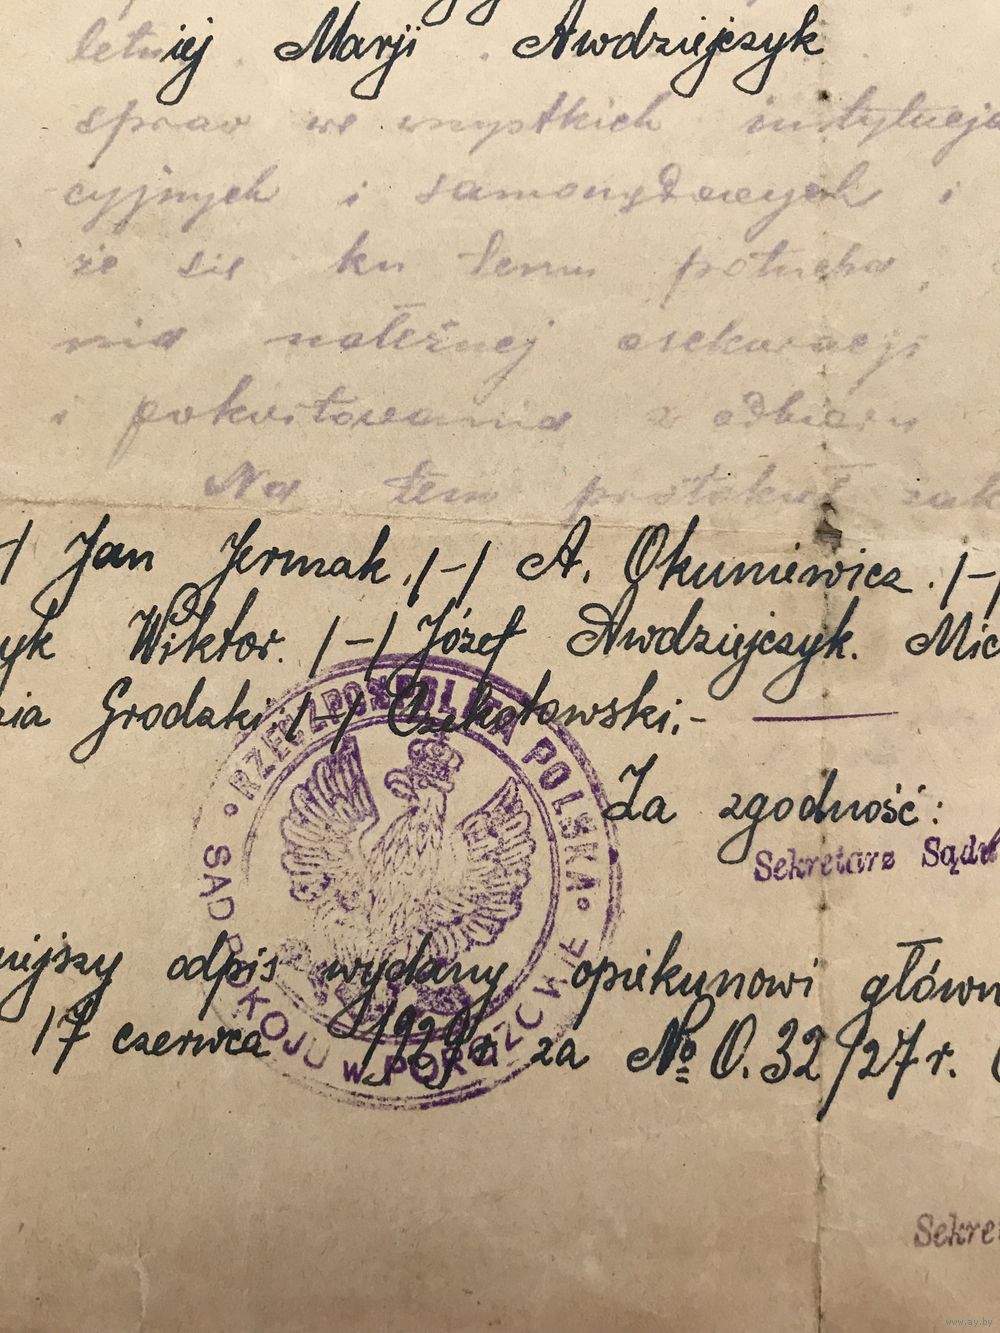 letniej Marji Awdziejczyk
spraw we wszystkich instytucja
cyjnych i samorządowych i
że się ku temu potrzeba,
nia należnej asekuracji
i pokwitowania z odbioru
Na tem protokół zak
-/ Jan Jermak. /-/ A. Okuniewicz. /-/
yk Wiktor. /-/ Józef Awdziejczyk. Mic
nia Grodzki. /-/ Czekotowski.-
RZECZPOSPOLITA POLSKA
Za zgodność:
Sekretarz Sądu
SĄD POKOJU w POROZOWIE
niejszy odpis wydany opiekunowi główn
17 czerwca 1929 r. za № O. 32/27 r.
Sekre
www.ay.by